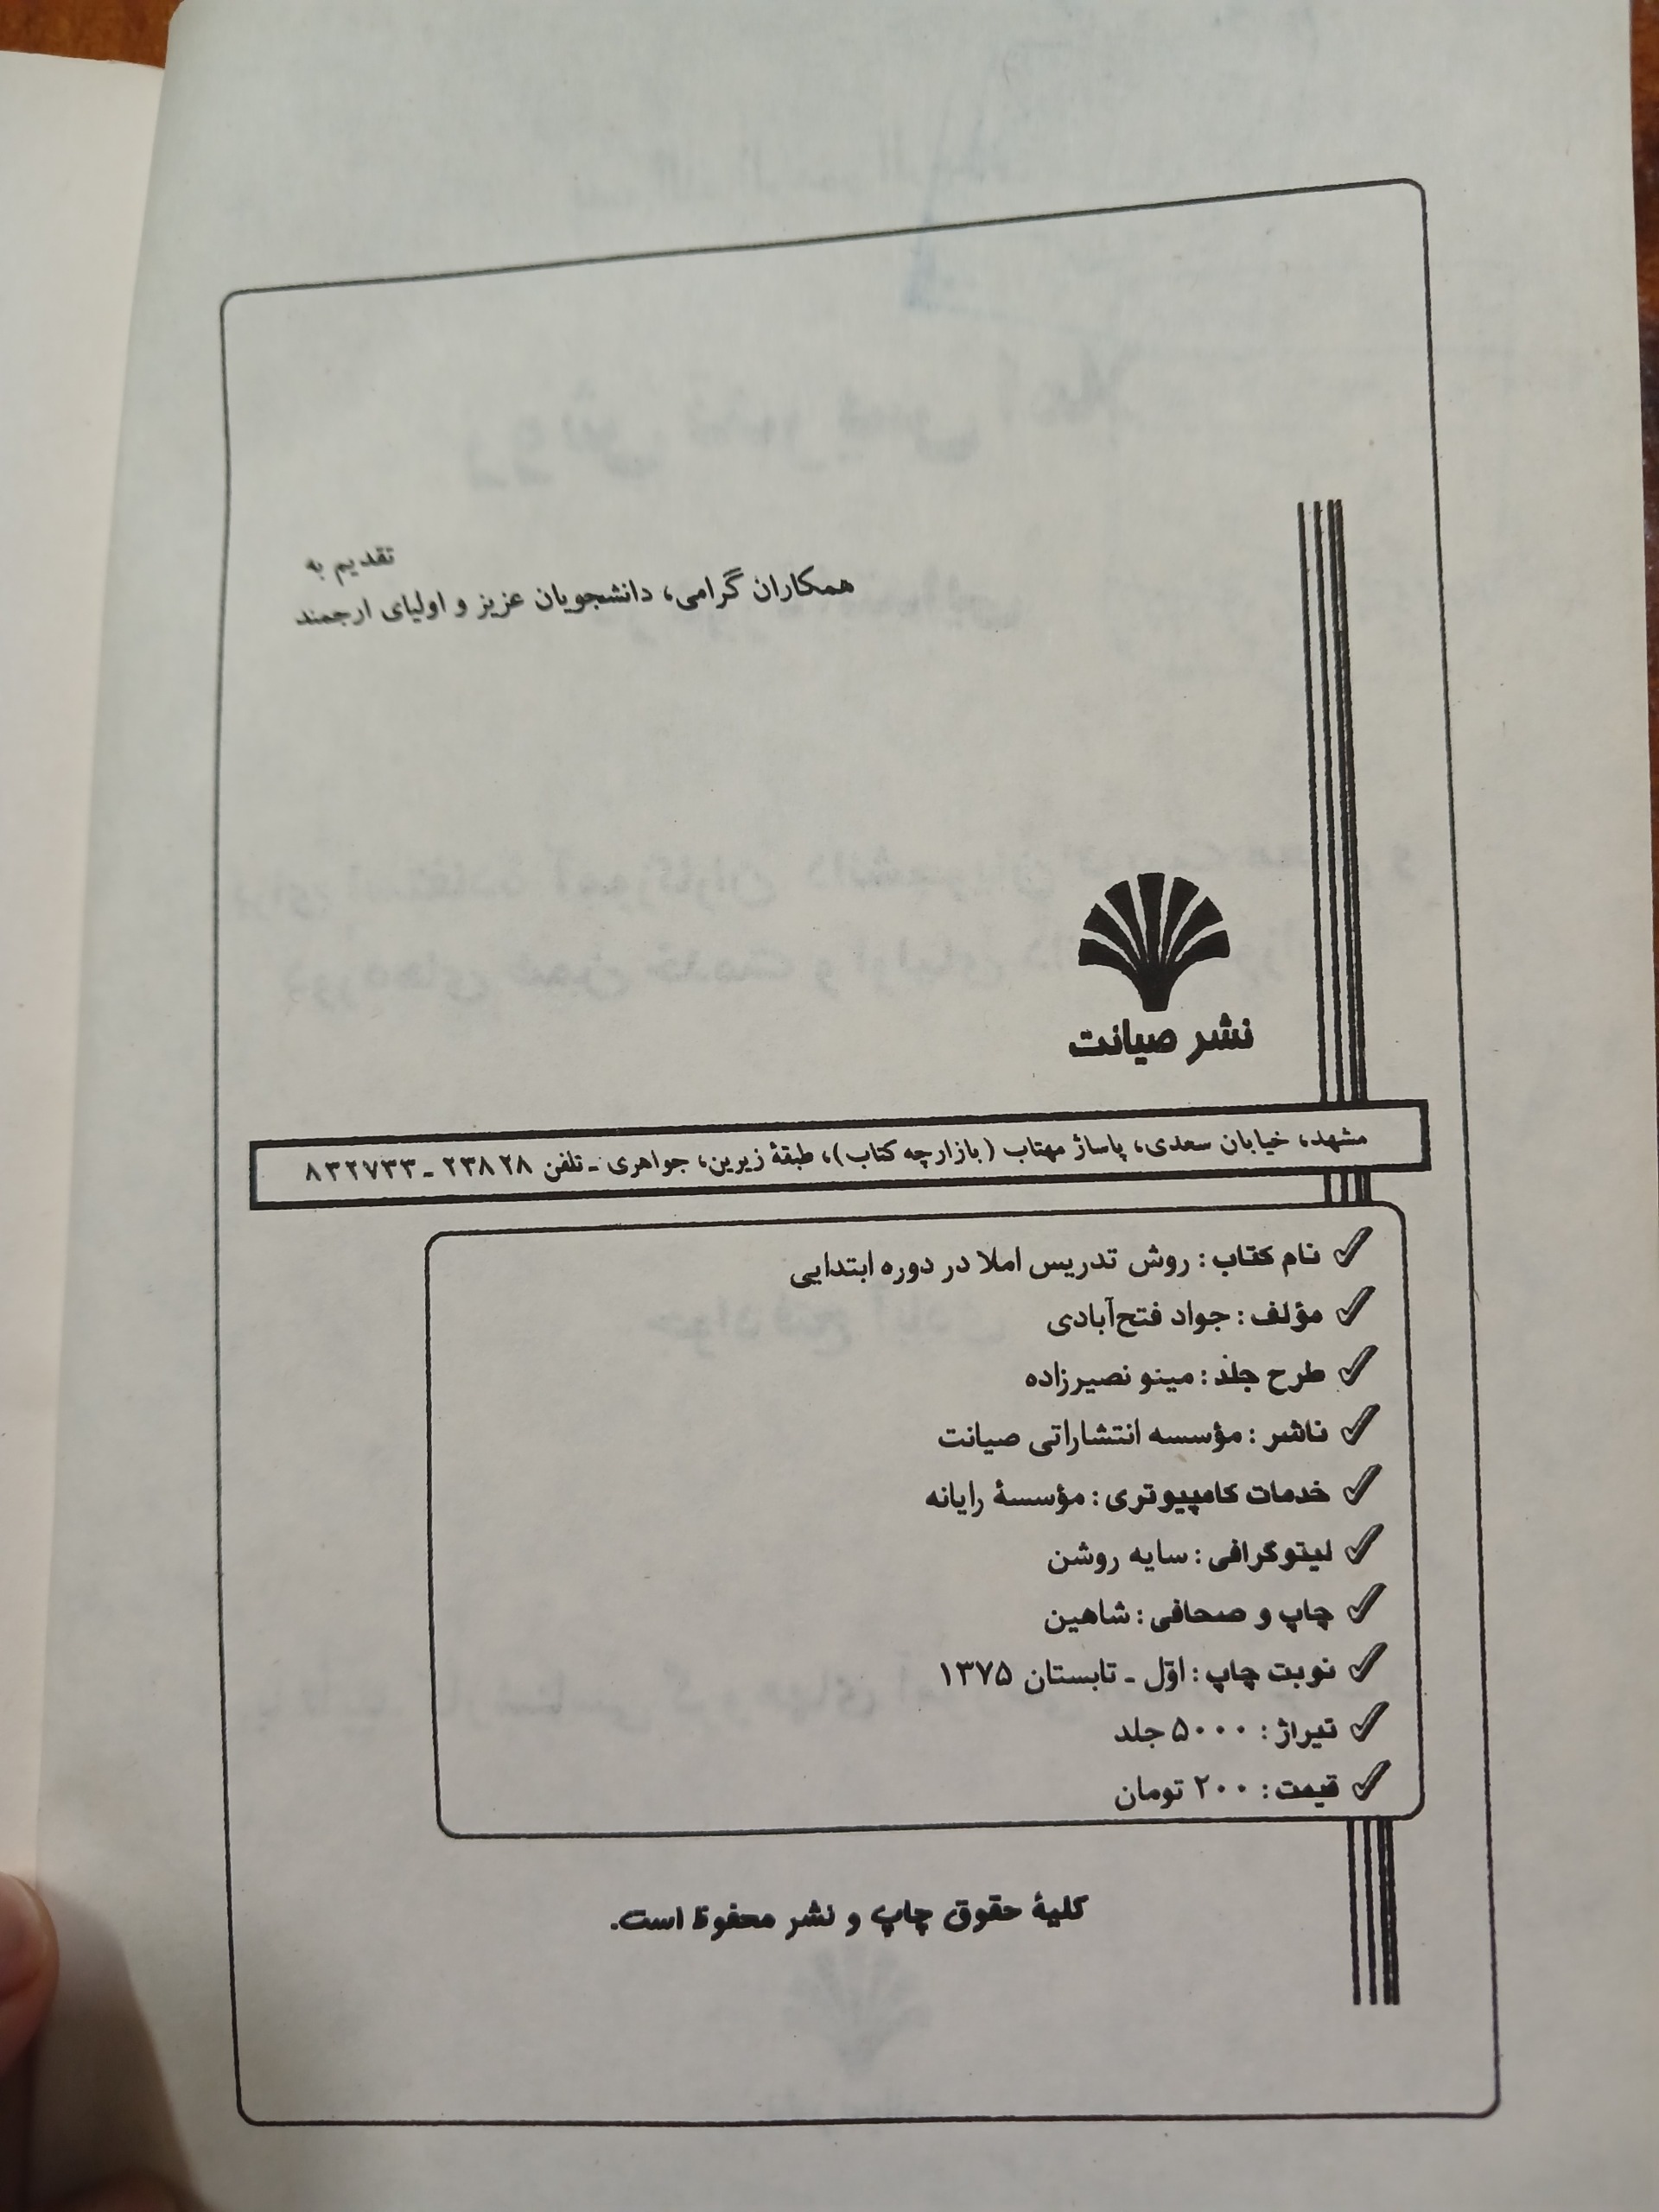 تقدیم به
همکاران گرامی، دانشجویان عزیز و اولیای ارجمند
نشر صیانت
مشهد، خیابان سعدی، پاساژ مهتاب (بازارچه کتاب)، طبقهٔ زیرین، جواهری ـ تلفن ۲۳۸۲۸ ـ ۸۳۲۷۳۳
نام کتاب : روش تدریس املا در دوره ابتدایی
مؤلف : جواد فتح‌آبادی
طرح جلد : مینو نصیرزاده
ناشر : مؤسسه انتشاراتی صیانت
خدمات کامپیوتری : مؤسسهٔ رایانه
لیتوگرافی : سایه روشن
چاپ و صحافی : شاهین
نوبت چاپ : اوّل ـ تابستان ۱۳۷۵
تیراژ : ۵۰۰۰ جلد
قیمت : ۲۰۰ تومان
کلیهٔ حقوق چاپ و نشر محفوظ است.